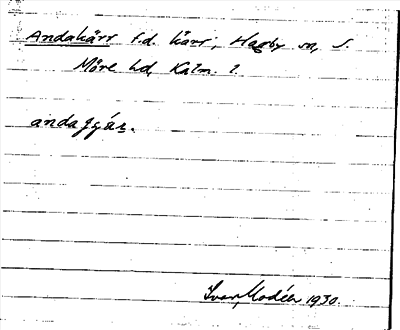 Andakärr f.d. kärr, Hagby sn, S.
Möre hd, Kalm. l.
andaɟɟär.
Ivar Modéer 1930.